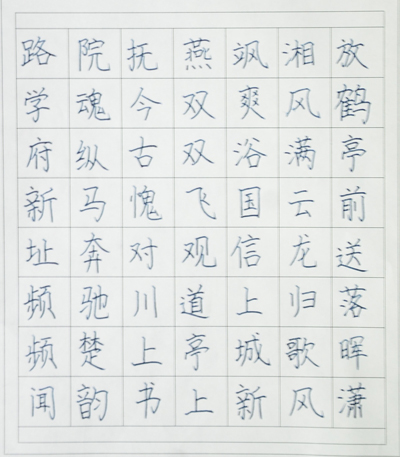 放鹤亭前送落晖潇
湘风满云龙归歌风
飒爽浴国信上城新
燕双双飞观道亭上
抚今古愧对川上书
院魂纵马奔驰楚韵
路学府新址频频闻